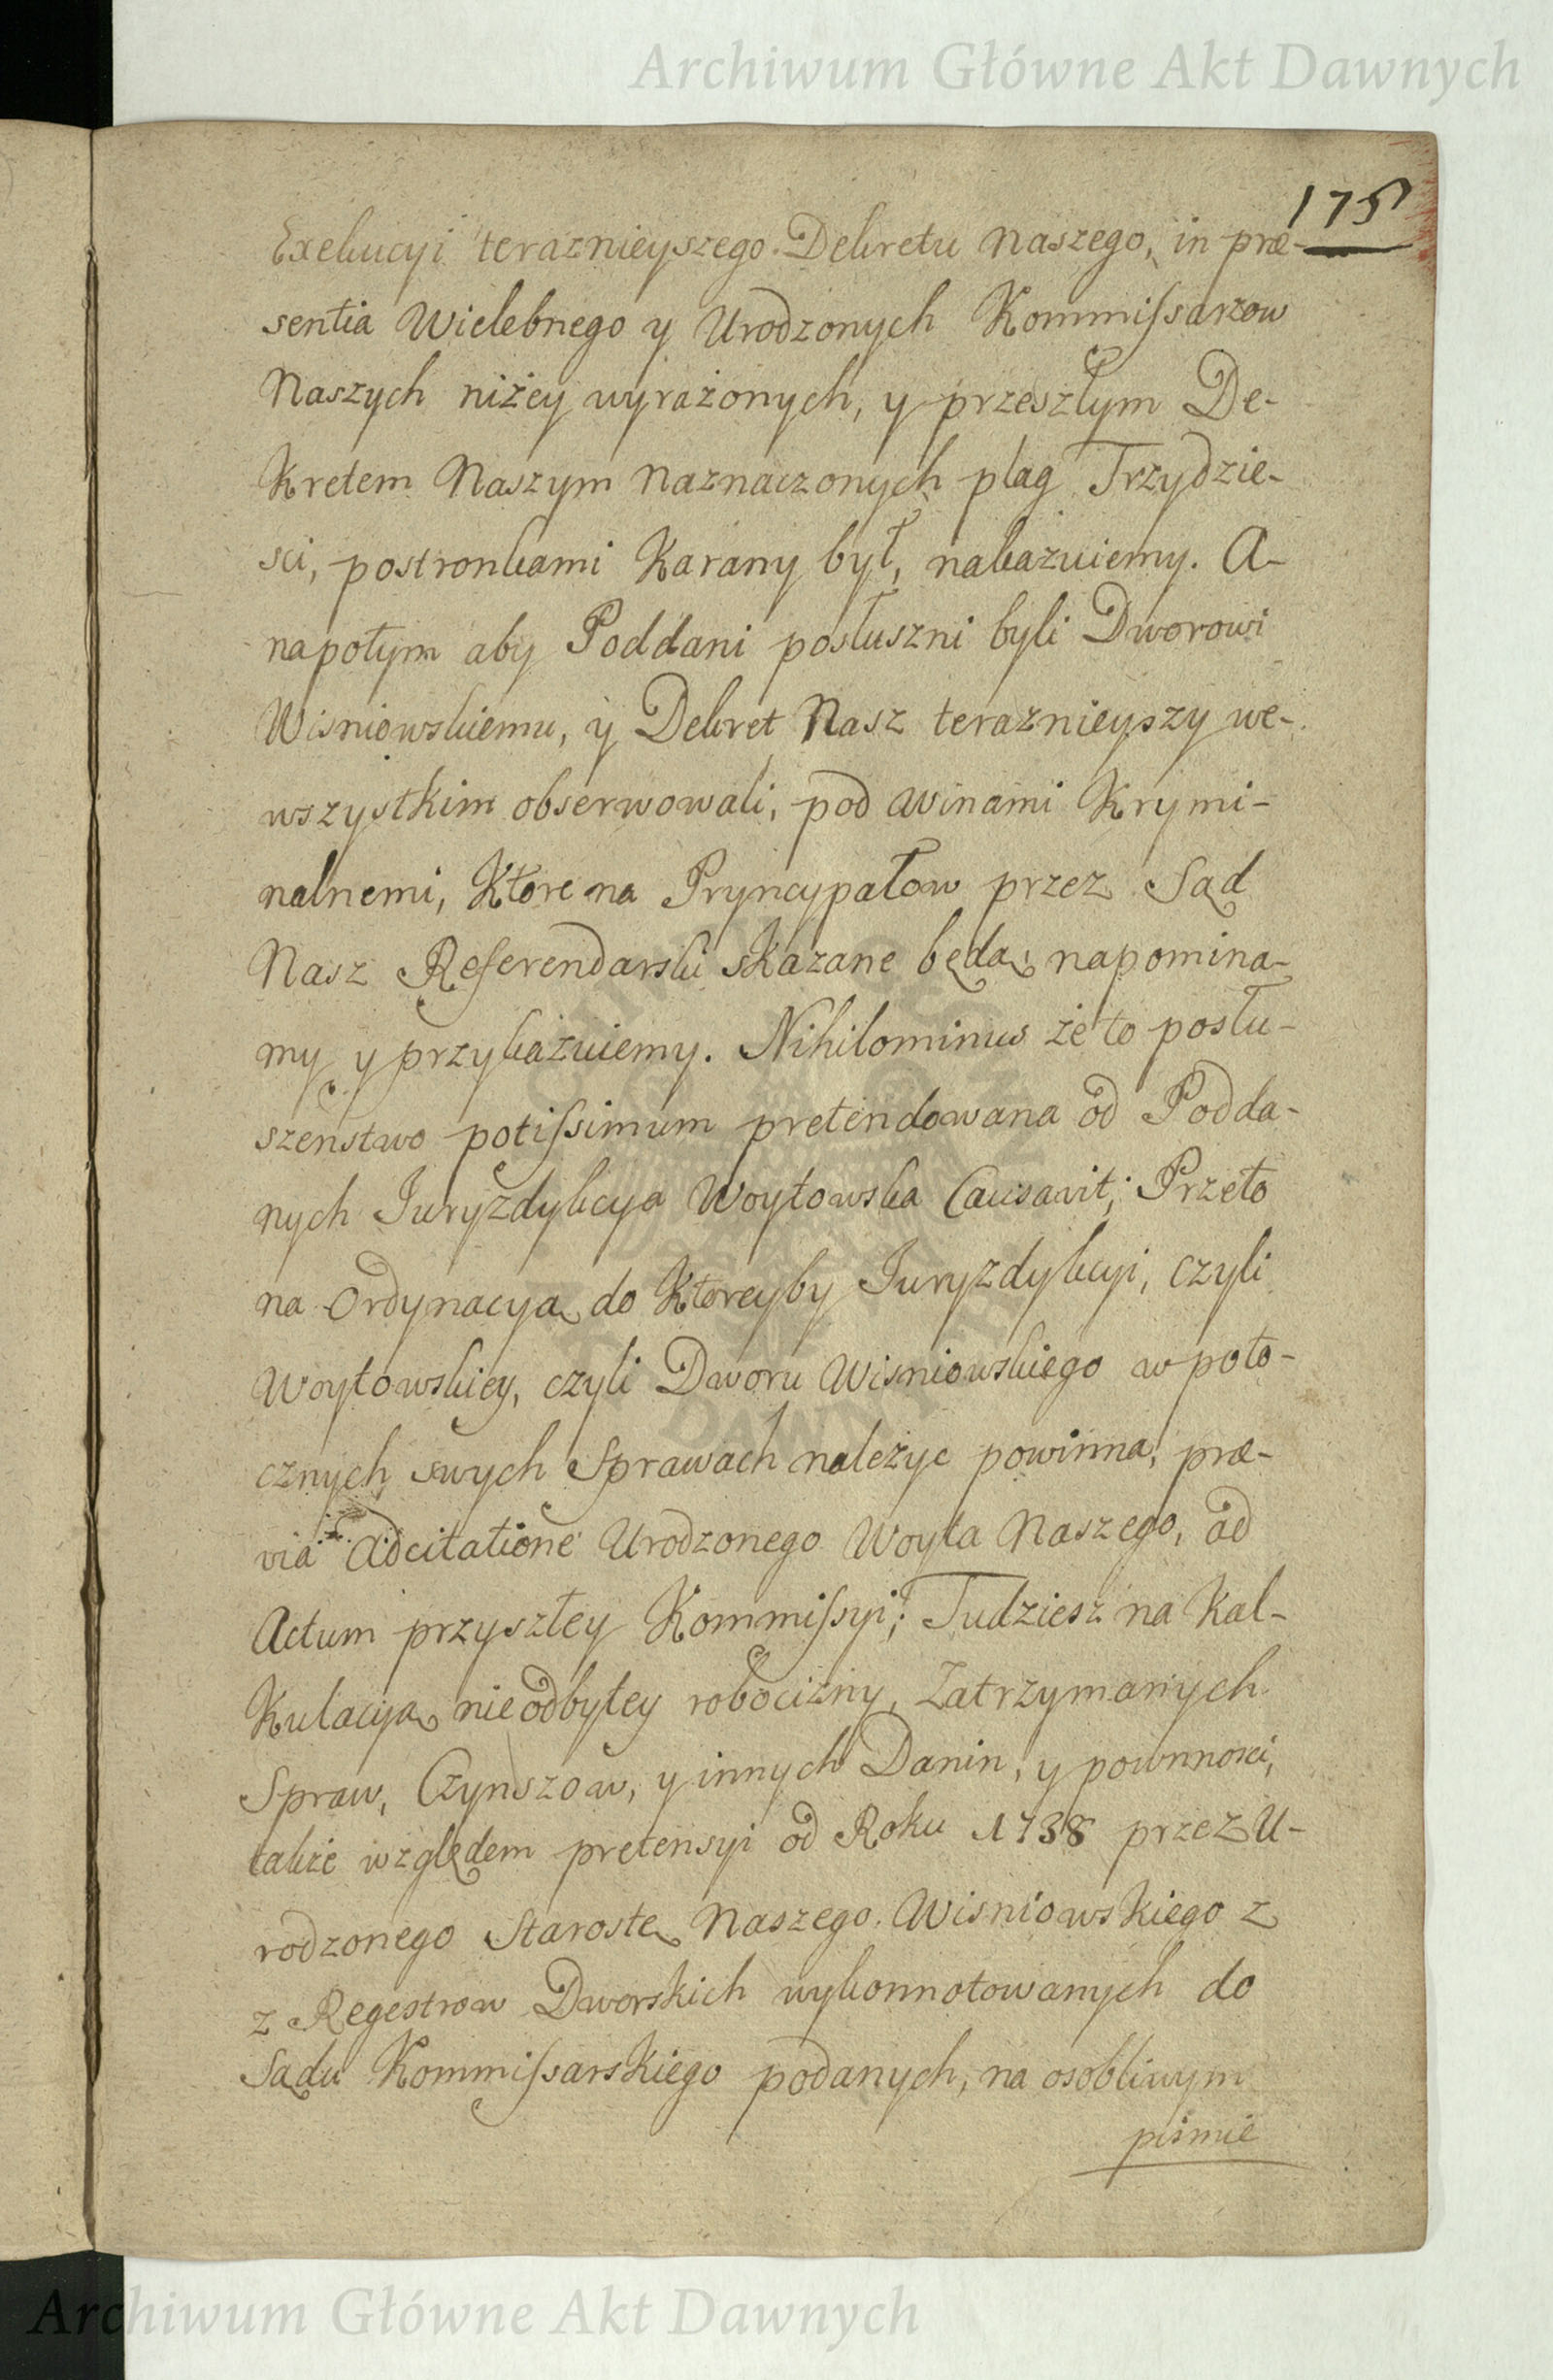 Archiwum Główne Akt Dawnych
175
Exekucyi teraznieyszego Dekretu Naszego, in præ-
sentia Wielebnego y Urodzonych Kommissarzow
Naszych niżey wyrażonych, y przeszłym De-
kretem Naszym naznaczonych plag Trzydzie-
sci, postronkami karany był, nakazuiemy. A-
napotym aby Poddani posłuszni byli Dworowi
Wisniowskiemu, y Dekret Nasz teraznieyszy we-
wszystkim obserwowali, pod winami Krymi-
nalnemi, ktore na Pryncypałow przez Sąd
Nasz Referendarski skazane będą, napomina-
my y przykazuiemy. Nihilominus że to posłu-
szenstwo potissimum pretendowana od Podda-
nych Juryzdykcya Woytowska causavit; Przeto
na Ordynacyą do ktoreyby Juryzdykcyi, czyli
Woytowskiey, czyli Dworu Wisniowskiego w poto-
cznych swych Sprawach należyc powinna, præ-
via Adcitatione Urodzonego Woyta Naszego, ad
Actum przyszłey Kommissyi; Tudziesz na kal-
kulacyą nieodbytey robocizny, Zatrzymanych
Spraw, Czynszow, y innych Danin, y pownnosci,
także względem pretensyi od Roku 1738 przez U-
rodzonego Starostę Naszego Wisniowskiego z
z Regestrow Dworskich wykonnotowanych do
Sądu Kommissarskiego podanych, na osobliwym
pismie
Archiwum Główne Akt Dawnych